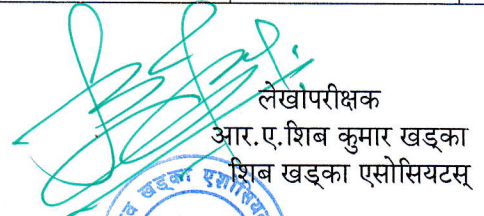 लेखापरीक्षक
आर.ए.शिब कुमार खड्का
शिब खड्का एसोसियटस्
खड्का एसोसिय